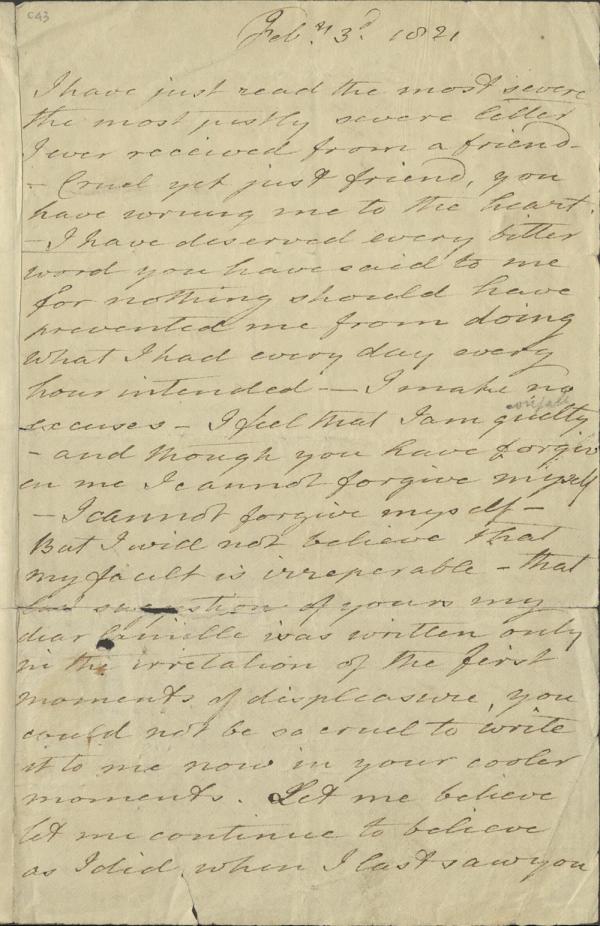 C43
Feby. 3d. 1821
I have just read the most severe
the most justly severe letter
I ever received from a friend -
- Cruel yet just friend, you
have wrung me to the heart.
- I have deserved every bitter
word you have said to me
for nothing should have
prevented me from doing
what I had every day every
hour intended — I make no
excuses - I feel that I am guilty
- and though you have forgiv
en me I cannot forgive myself
- I cannot forgive myself -
But I will not believe that
my fault is irreperable - that
of yours my
dear was written only
in the irretation of the first
moments of displeasure, you
could not be so cruel to write
it to me now in your cooler
moments. Let me believe
let me continue to believe
as I did when I last saw you